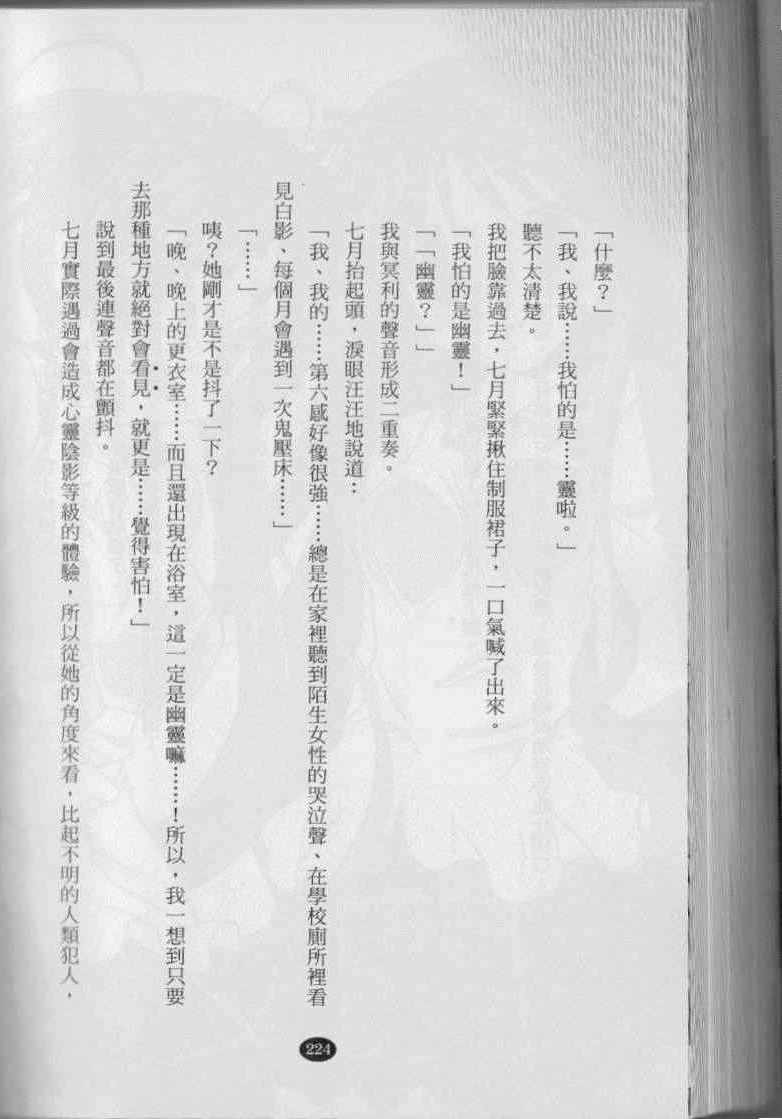 「什麼？」
「我、我說……我怕的是……靈啦。」
聽不太清楚。
我把臉靠過去，七月緊緊揪住制服裙子，一口氣喊了出來。
「我怕的是幽靈！」
「「幽靈？」」
我與冥利的聲音形成二重奏。
七月抬起頭，淚眼汪汪地說道：
「我、我的……第六感好像很強……總是在家裡聽到陌生女性的哭泣聲、在學校廁所裡看
見白影、每個月會遇到一次鬼壓床……」
「……」
咦？她剛才是不是抖了一下？
「晚、晚上的更衣室……而且還出現在浴室，這一定是幽靈嘛……！所以，我一想到只要
去那種地方就絕對會看見，就更是……覺得害怕！」
說到最後連聲音都在顫抖。
七月實際遇過會造成心靈陰影等級的體驗，所以從她的角度來看，比起不明的人類犯人，
224